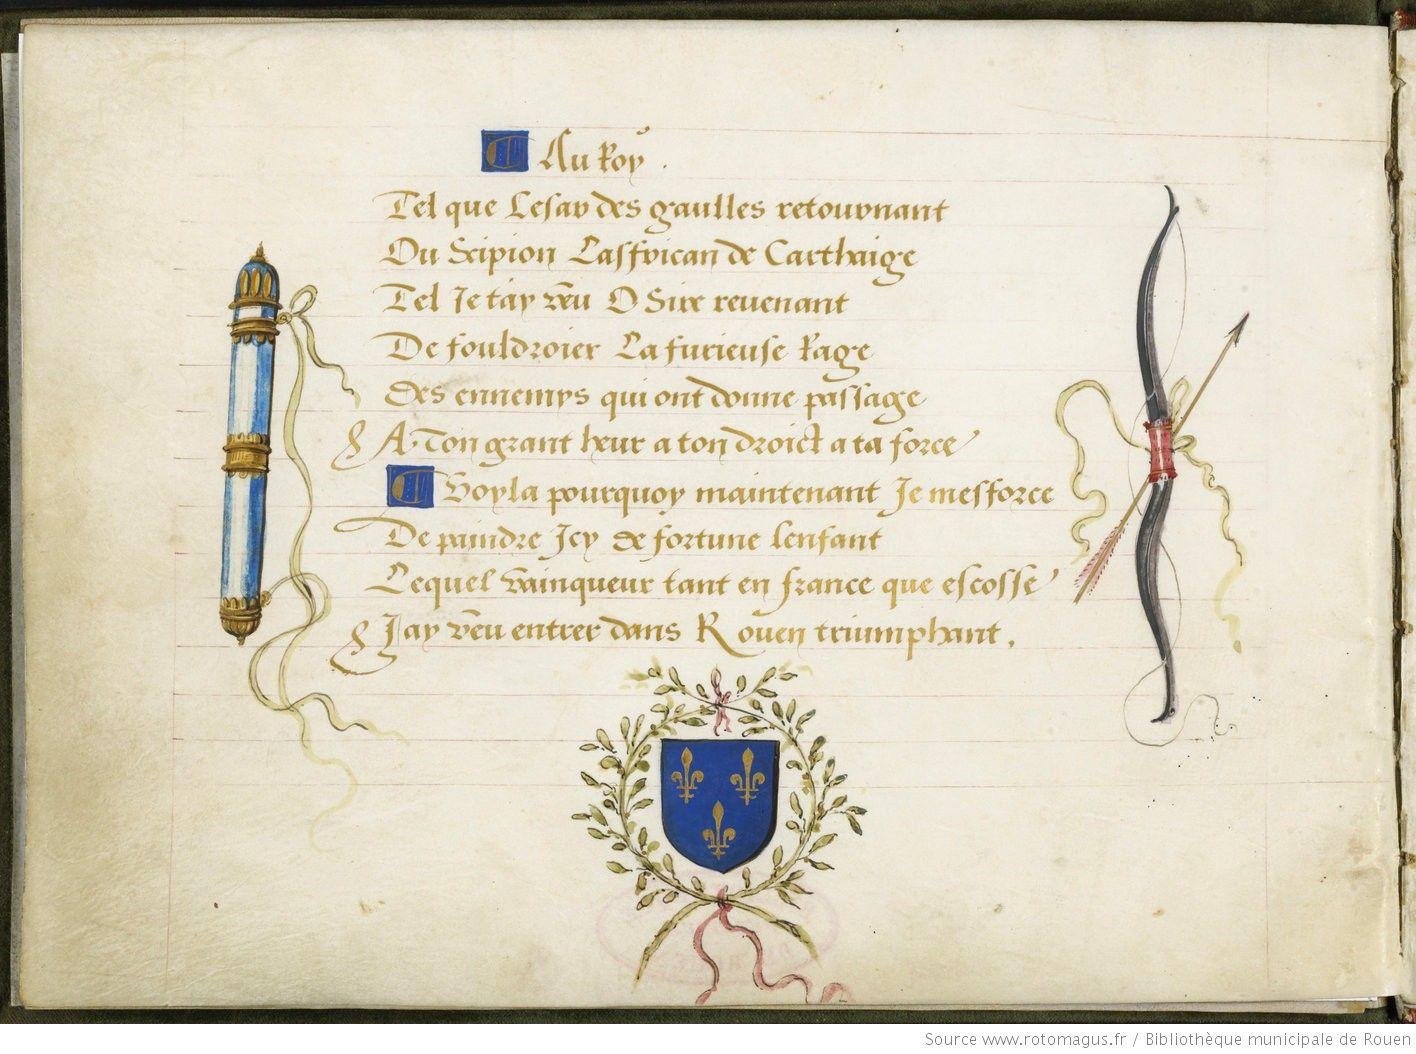 Au Roy.
Tel que Cesar des gaulles retournant
Ou Scipion Laffrican de Carthaige
Tel Je tay veu O Sire revenant
De fouldroier La furieuse Rage
Des ennemys qui ont donne passage
A Ton grant heur a ton droict a ta force
Voyla pourquoy maintenant Je mesforce
De paindre Icy de fortune lenfant
Lequel vainqueur tant en france que escosse
Jay veu entrer dans Rouen triumphant.
Source www.rotomagus.fr / Bibliothèque municipale de Rouen